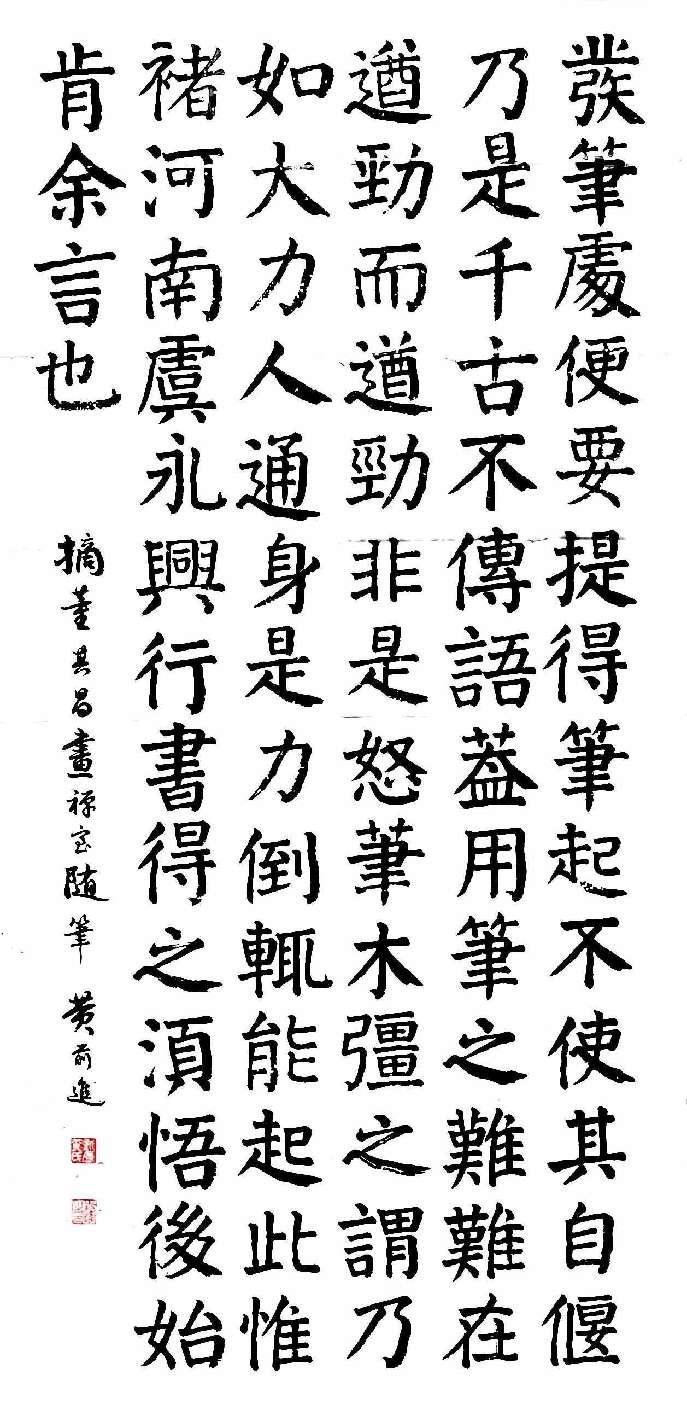 發筆處便要提得筆起不使其自偃
乃是千古不傳語蓋用筆之難難在
遒勁而遒勁非是怒筆木彊之謂乃
如大力人通身是力倒輒能起此惟
褚河南虞永興行書得之須悟後始
肯余言也
摘董其昌畫禪室隨筆 黄前進